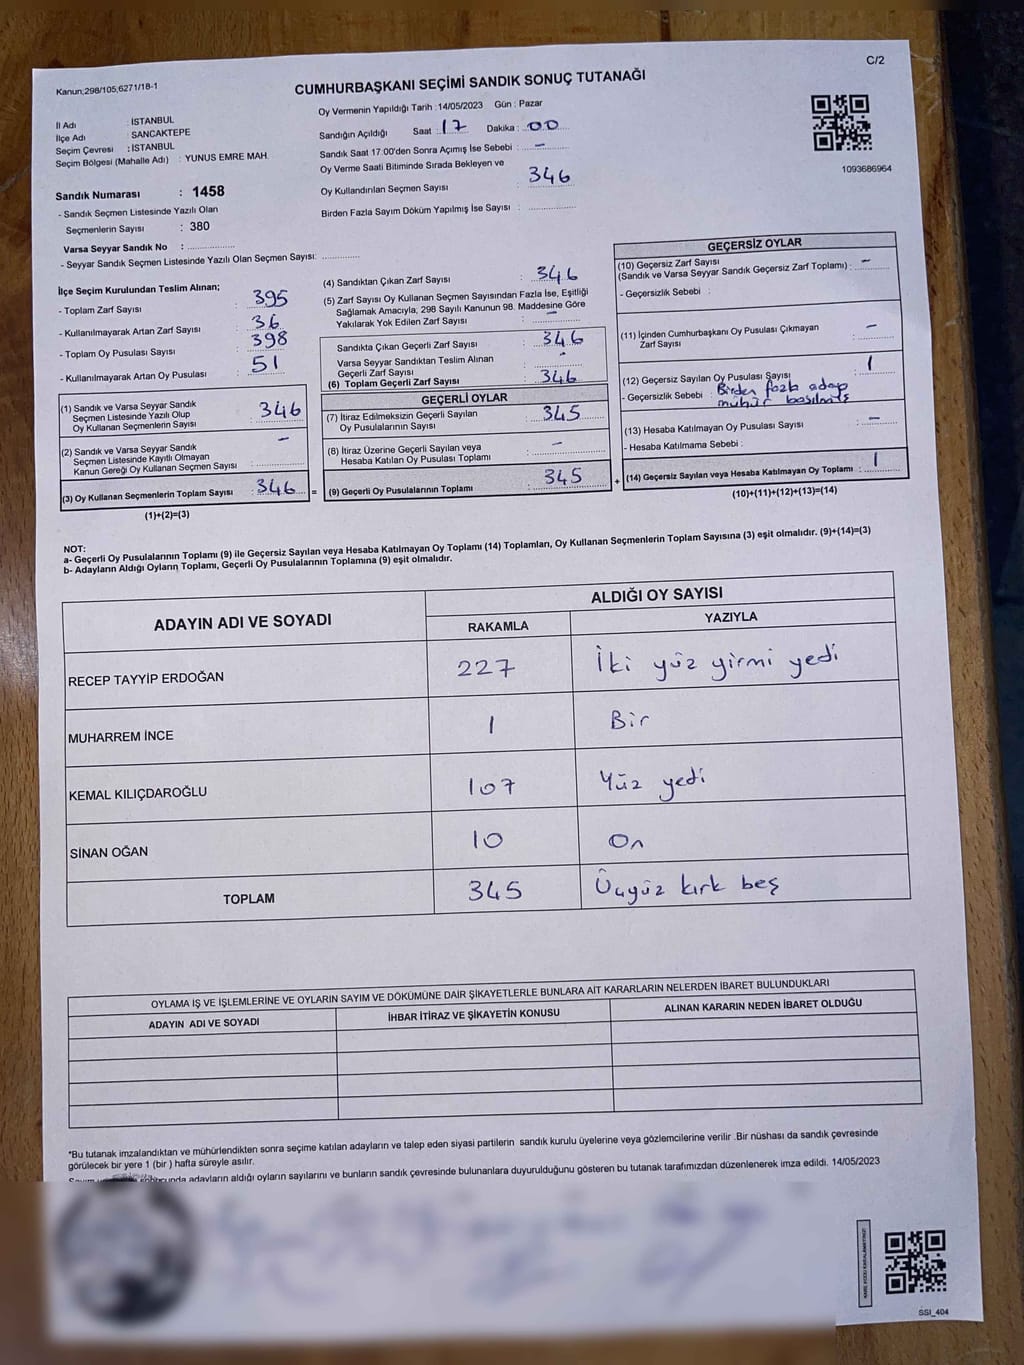 C/2
Kanun;298/105;6271/18-1
CUMHURBAŞKANI SEÇİMİ SANDIK SONUÇ TUTANAĞI
İl Adı : İSTANBUL
İlçe Adı : SANCAKTEPE
Seçim Çevresi : İSTANBUL
Seçim Bölgesi (Mahalle Adı) : YUNUS EMRE MAH.
Sandık Numarası : 1458
- Sandık Seçmen Listesinde Yazılı Olan
Seçmenlerin Sayısı : 380
Varsa Seyyar Sandık No :
- Seyyar Sandık Seçmen Listesinde Yazılı Olan Seçmen Sayısı:
Oy Vermenin Yapıldığı Tarih :14/05/2023 Gün : Pazar
Sandığın Açıldığı Saat : 17 Dakika : 00
Sandık Saat 17:00'den Sonra Açımış İse Sebebi : -
Oy Verme Saati Bitiminde Sırada Bekleyen ve
Oy Kullandırılan Seçmen Sayısı : 346
Birden Fazla Sayım Döküm Yapılmış İse Sayısı :
1093686964
İlçe Seçim Kurulundan Teslim Alınan;
- Toplam Zarf Sayısı : 395
- Kullanılmayarak Artan Zarf Sayısı : 36
- Toplam Oy Pusulası Sayısı : 398
- Kullanılmayarak Artan Oy Pusulası : 51
(1) Sandık ve Varsa Seyyar Sandık
Seçmen Listesinde Yazılı Olup
Oy Kullanan Seçmenlerin Sayısı : 346
(2) Sandık ve Varsa Seyyar Sandık
Seçmen Listesinde Kayıtlı Olmayan
Kanun Gereği Oy Kullanan Seçmen Sayısı : -
(3) Oy Kullanan Seçmenlerin Toplam Sayısı : 346
(1)+(2)=(3)
(4) Sandıktan Çıkan Zarf Sayısı : 346
(5) Zarf Sayısı Oy Kullanan Seçmen Sayısından Fazla İse, Eşitliği
Sağlamak Amacıyla, 298 Sayılı Kanunun 98. Maddesine Göre
Yakılarak Yok Edilen Zarf Sayısı : -
Sandıkta Çıkan Geçerli Zarf Sayısı : 346
Varsa Seyyar Sandıktan Teslim Alınan
Geçerli Zarf Sayısı : -
(6) Toplam Geçerli Zarf Sayısı : 346
GEÇERLİ OYLAR
(7) İtiraz Edilmeksizin Geçerli Sayılan
Oy Pusulalarının Sayısı : 345
(8) İtiraz Üzerine Geçerli Sayılan veya
Hesaba Katılan Oy Pusulası Toplamı : -
= (9) Geçerli Oy Pusulalarının Toplamı : 345
GEÇERSİZ OYLAR
(10) Geçersiz Zarf Sayısı
(Sandık ve Varsa Seyyar Sandık Geçersiz Zarf Toplamı) : -
- Geçersizlik Sebebi :
(11) İçinden Cumhurbaşkanı Oy Pusulası Çıkmayan
Zarf Sayısı : -
(12) Geçersiz Sayılan Oy Pusulası Sayısı : 1
- Geçersizlik Sebebi : Birden fazla aday
mühür basılmış
(13) Hesaba Katılmayan Oy Pusulası Sayısı : -
- Hesaba Katılmama Sebebi :
+ (14) Geçersiz Sayılan veya Hesaba Katılmayan Oy Toplamı : 1
(10)+(11)+(12)+(13)=(14)
NOT:
a- Geçerli Oy Pusulalarının Toplamı (9) ile Geçersiz Sayılan veya Hesaba Katılmayan Oy Toplamı (14) Toplamları, Oy Kullanan Seçmenlerin Toplam Sayısına (3) eşit olmalıdır. (9)+(14)=(3)
b- Adayların Aldığı Oyların Toplamı, Geçerli Oy Pusulalarının Toplamına (9) eşit olmalıdır.
ADAYIN ADI VE SOYADI ALDIĞI OY SAYISI
RAKAMLA YAZIYLA
RECEP TAYYİP ERDOĞAN 227 İki yüz yirmi yedi
MUHARREM İNCE 1 Bir
KEMAL KILIÇDAROĞLU 107 Yüz yedi
SİNAN OĞAN 10 On
TOPLAM 345 Üçyüz kırk beş
OYLAMA İŞ VE İŞLEMLERİNE VE OYLARIN SAYIM VE DÖKÜMÜNE DAİR ŞİKAYETLERLE BUNLARA AİT KARARLARIN NELERDEN İBARET BULUNDUKLARI
ADAYIN ADI VE SOYADI İHBAR İTİRAZ VE ŞİKAYETİN KONUSU ALINAN KARARIN NEDEN İBARET OLDUĞU
*Bu tutanak imzalandıktan ve mühürlendikten sonra seçime katılan adayların ve talep eden siyasi partilerin sandık kurulu üyelerine veya gözlemcilerine verilir .Bir nüshası da sandık çevresinde
görülecek bir yere 1 (bir ) hafta süreyle asılır.
adayların aldığı oyların sayılarını ve bunların sandık çevresinde bulunanlara duyurulduğunu gösteren bu tutanak tarafımızdan düzenlenerek imza edildi. 14/05/2023
SSI_404